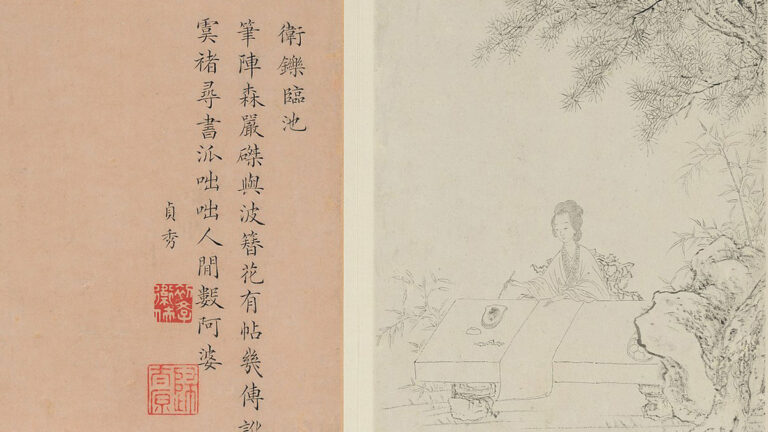 衛鑠臨池
筆陣森嚴磔與波簪花有帖幾傳
虞褚尋書派咄咄人閒數阿婆
貞秀